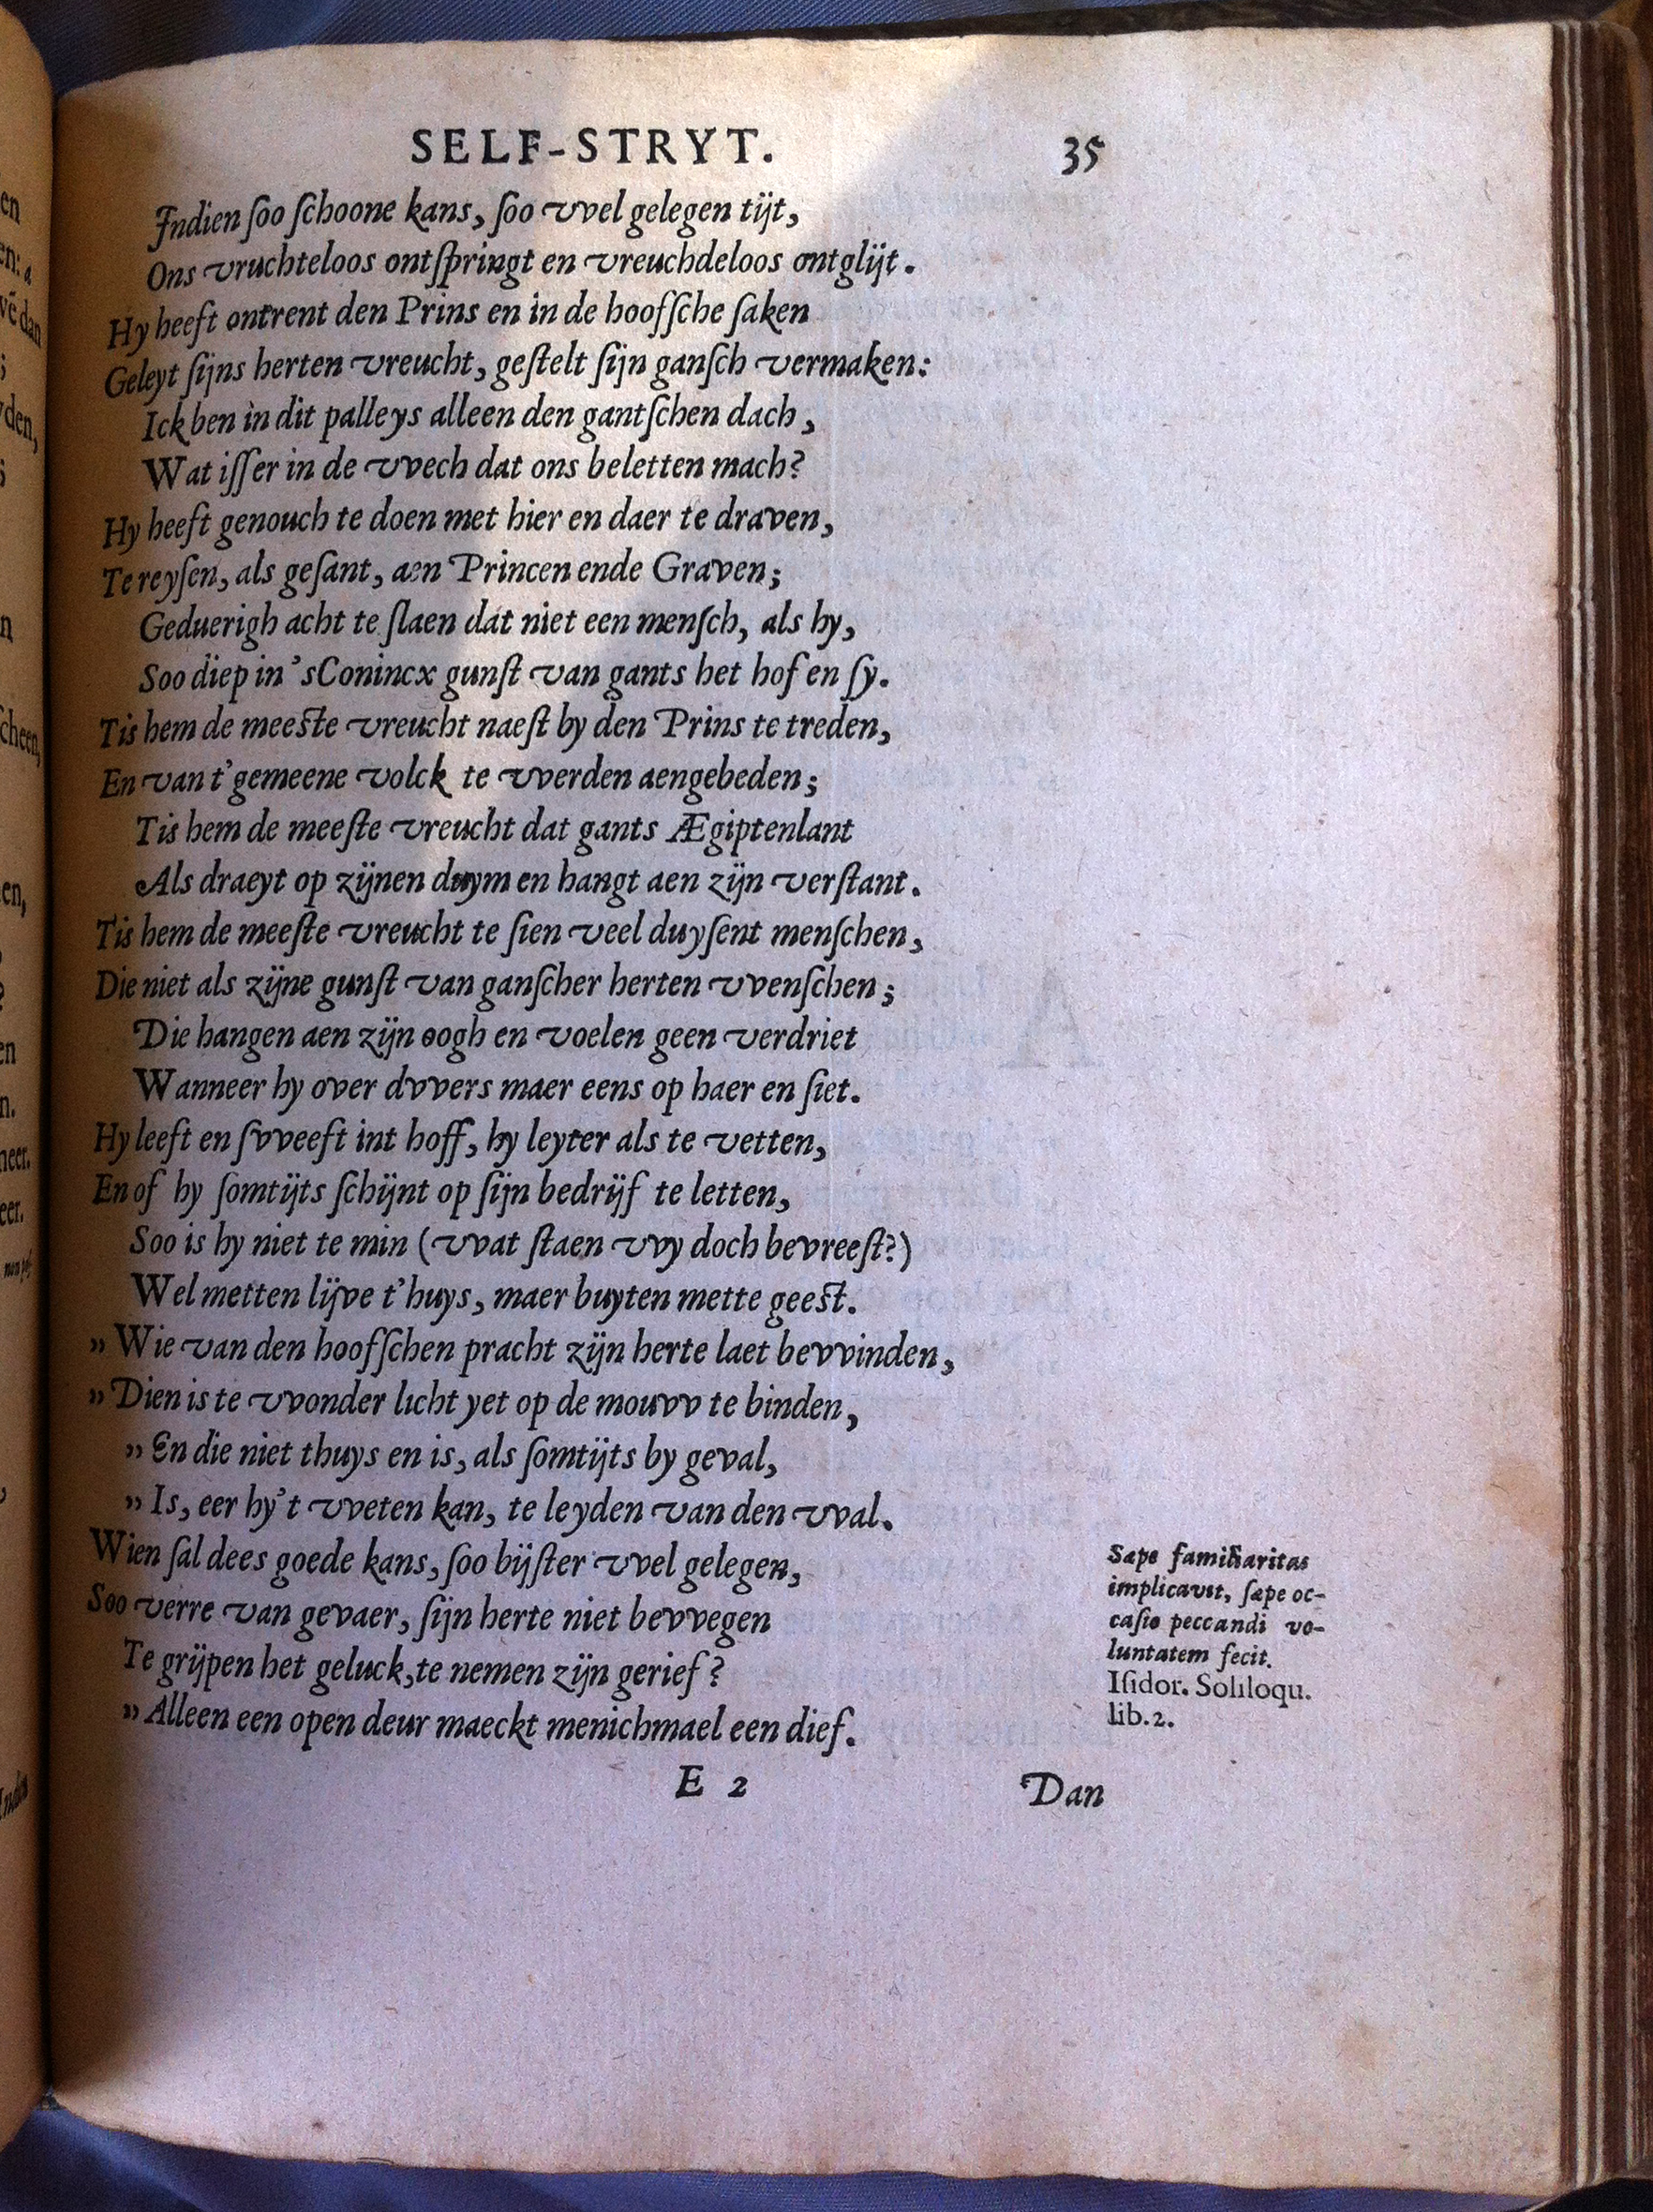 SELF-STRYT. 35
Indien ſoo ſchoone kans, ſoo vvel gelegen tijt,
Ons vruchteloos ontſpringt en vreuchdeloos ontglijt.
Hy heeft ontrent den Prins en in de hoofſche ſaken
Geleyt ſijns herten vreucht, geſtelt ſijn ganſch vermaken:
Ick ben in dit palleys alleen den gantſchen dach,
Wat iſſer in de vvech dat ons beletten mach?
Hy heeft genouch te doen met hier en daer te draven,
Te reyſen, als geſant, aen Princen ende Graven;
Geduerigh acht te ſlaen dat niet een menſch, als hy,
Soo diep in 'sConincx gunſt van gants het hof en ſy.
Tis hem de meeſte vreucht naeſt by den Prins te treden,
En van t'gemeene volck te vverden aengebeden;
Tis hem de meeſte vreucht dat gants Ægiptenlant
Als draeyt op zijnen duym en hangt aen zijn verſtant.
Tis hem de meeſte vreucht te ſien veel duyſent menſchen,
Die niet als zijne gunſt van ganſcher herten vvenſchen;
Die hangen aen zijn oogh en voelen geen verdriet
Wanneer hy over dvvers maer eens op haer en ſiet.
Hy leeft en ſvveeft int hoff, hy leyter als te vetten,
En of hy ſomtijts ſchijnt op ſijn bedrijf te letten,
Soo is hy niet te min (vvat ſtaen vvy doch bevreeſt?)
Wel metten lijve t'huys, maer buyten mette geeſt.
„ Wie van den hoofſchen pracht zijn herte laet bevvinden,
„ Dien is te vvonder licht yet op de mouvv te binden,
„ En die niet thuys en is, als ſomtijts by geval,
„ Is, eer hy't vveten kan, te leyden van den vval.
Wien ſal dees goede kans, ſoo bijſter vvel gelegen,
Soo verre van gevaer, ſijn herte niet bevvegen
Te grijpen het geluck, te nemen zijn gerief?
„ Alleen een open deur maeckt menichmael een dief.
Sæpe familiaritas
implicavit, ſæpe oc-
caſio peccandi vo-
luntatem fecit.
Iſidor. Soliloqu.
lib. 2.
E 2 Dan